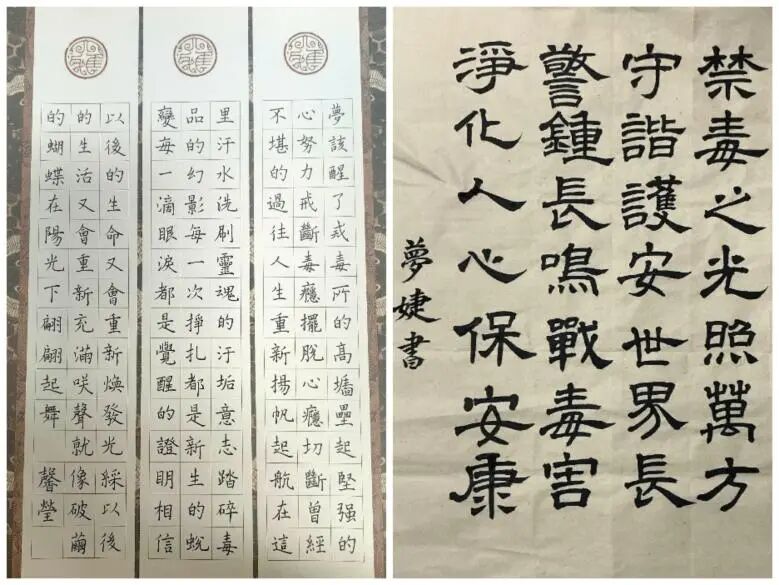 夢該醒了戒毒所的高墻壘起堅强的
心努力戒斷毒癮擺脫心癮切斷曾經
不堪的過往人生重新揚帆起航在這
里汗水洗刷靈魂的汙垢意志踏碎毒
品的幻影每一次掙扎都是新生的蛻
變每一滴眼淚都是覺醒的證明相信
以後的生命又會重新煥發光綵以後
的生活又會重新充滿咲聲就像破繭
的蝴蝶在陽光下翩翩起舞 馨瑩
禁毒之光照萬方
守諧護安世界長
警鍾長鳴戰毒害
淨化人心保安康
夢婕書